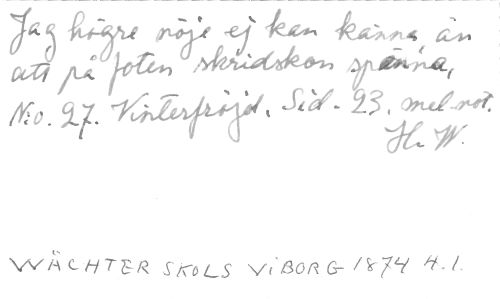 Jag högre nöje ej kan känna än
att på foten skridskon spänna,
N:o. 27. Vinterfröjd. Sid. 23. mel. not.
H. W.
WÄCHTER SKOLS ViBORG 1874 H.1.